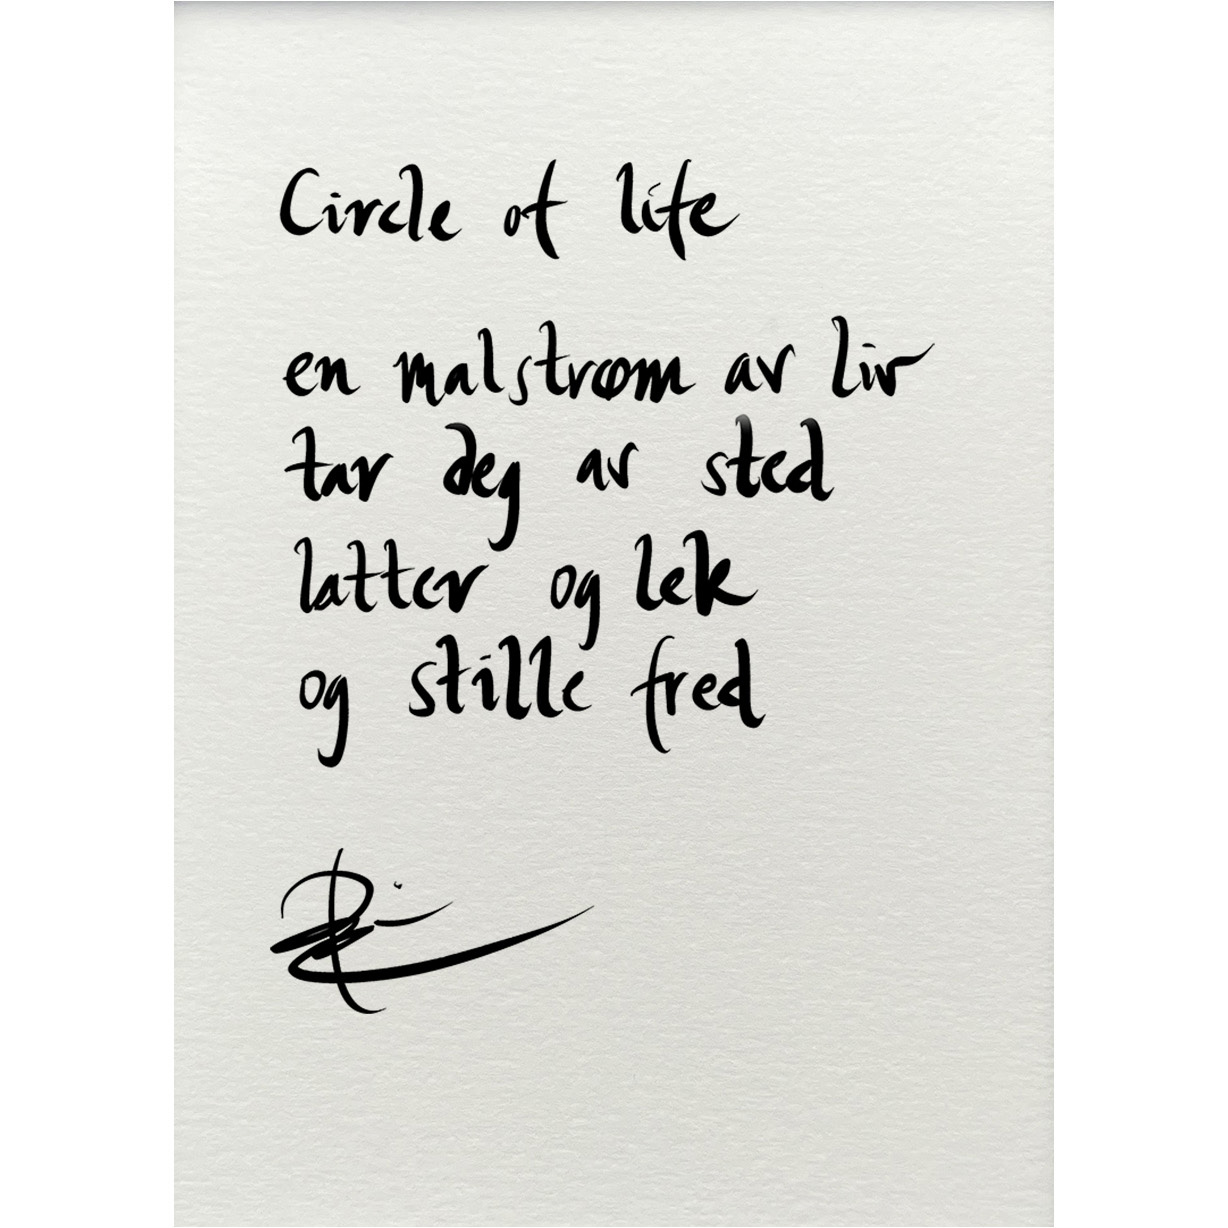 Circle of life
en malstrøm av liv
tar deg av sted
latter og lek
og stille fred